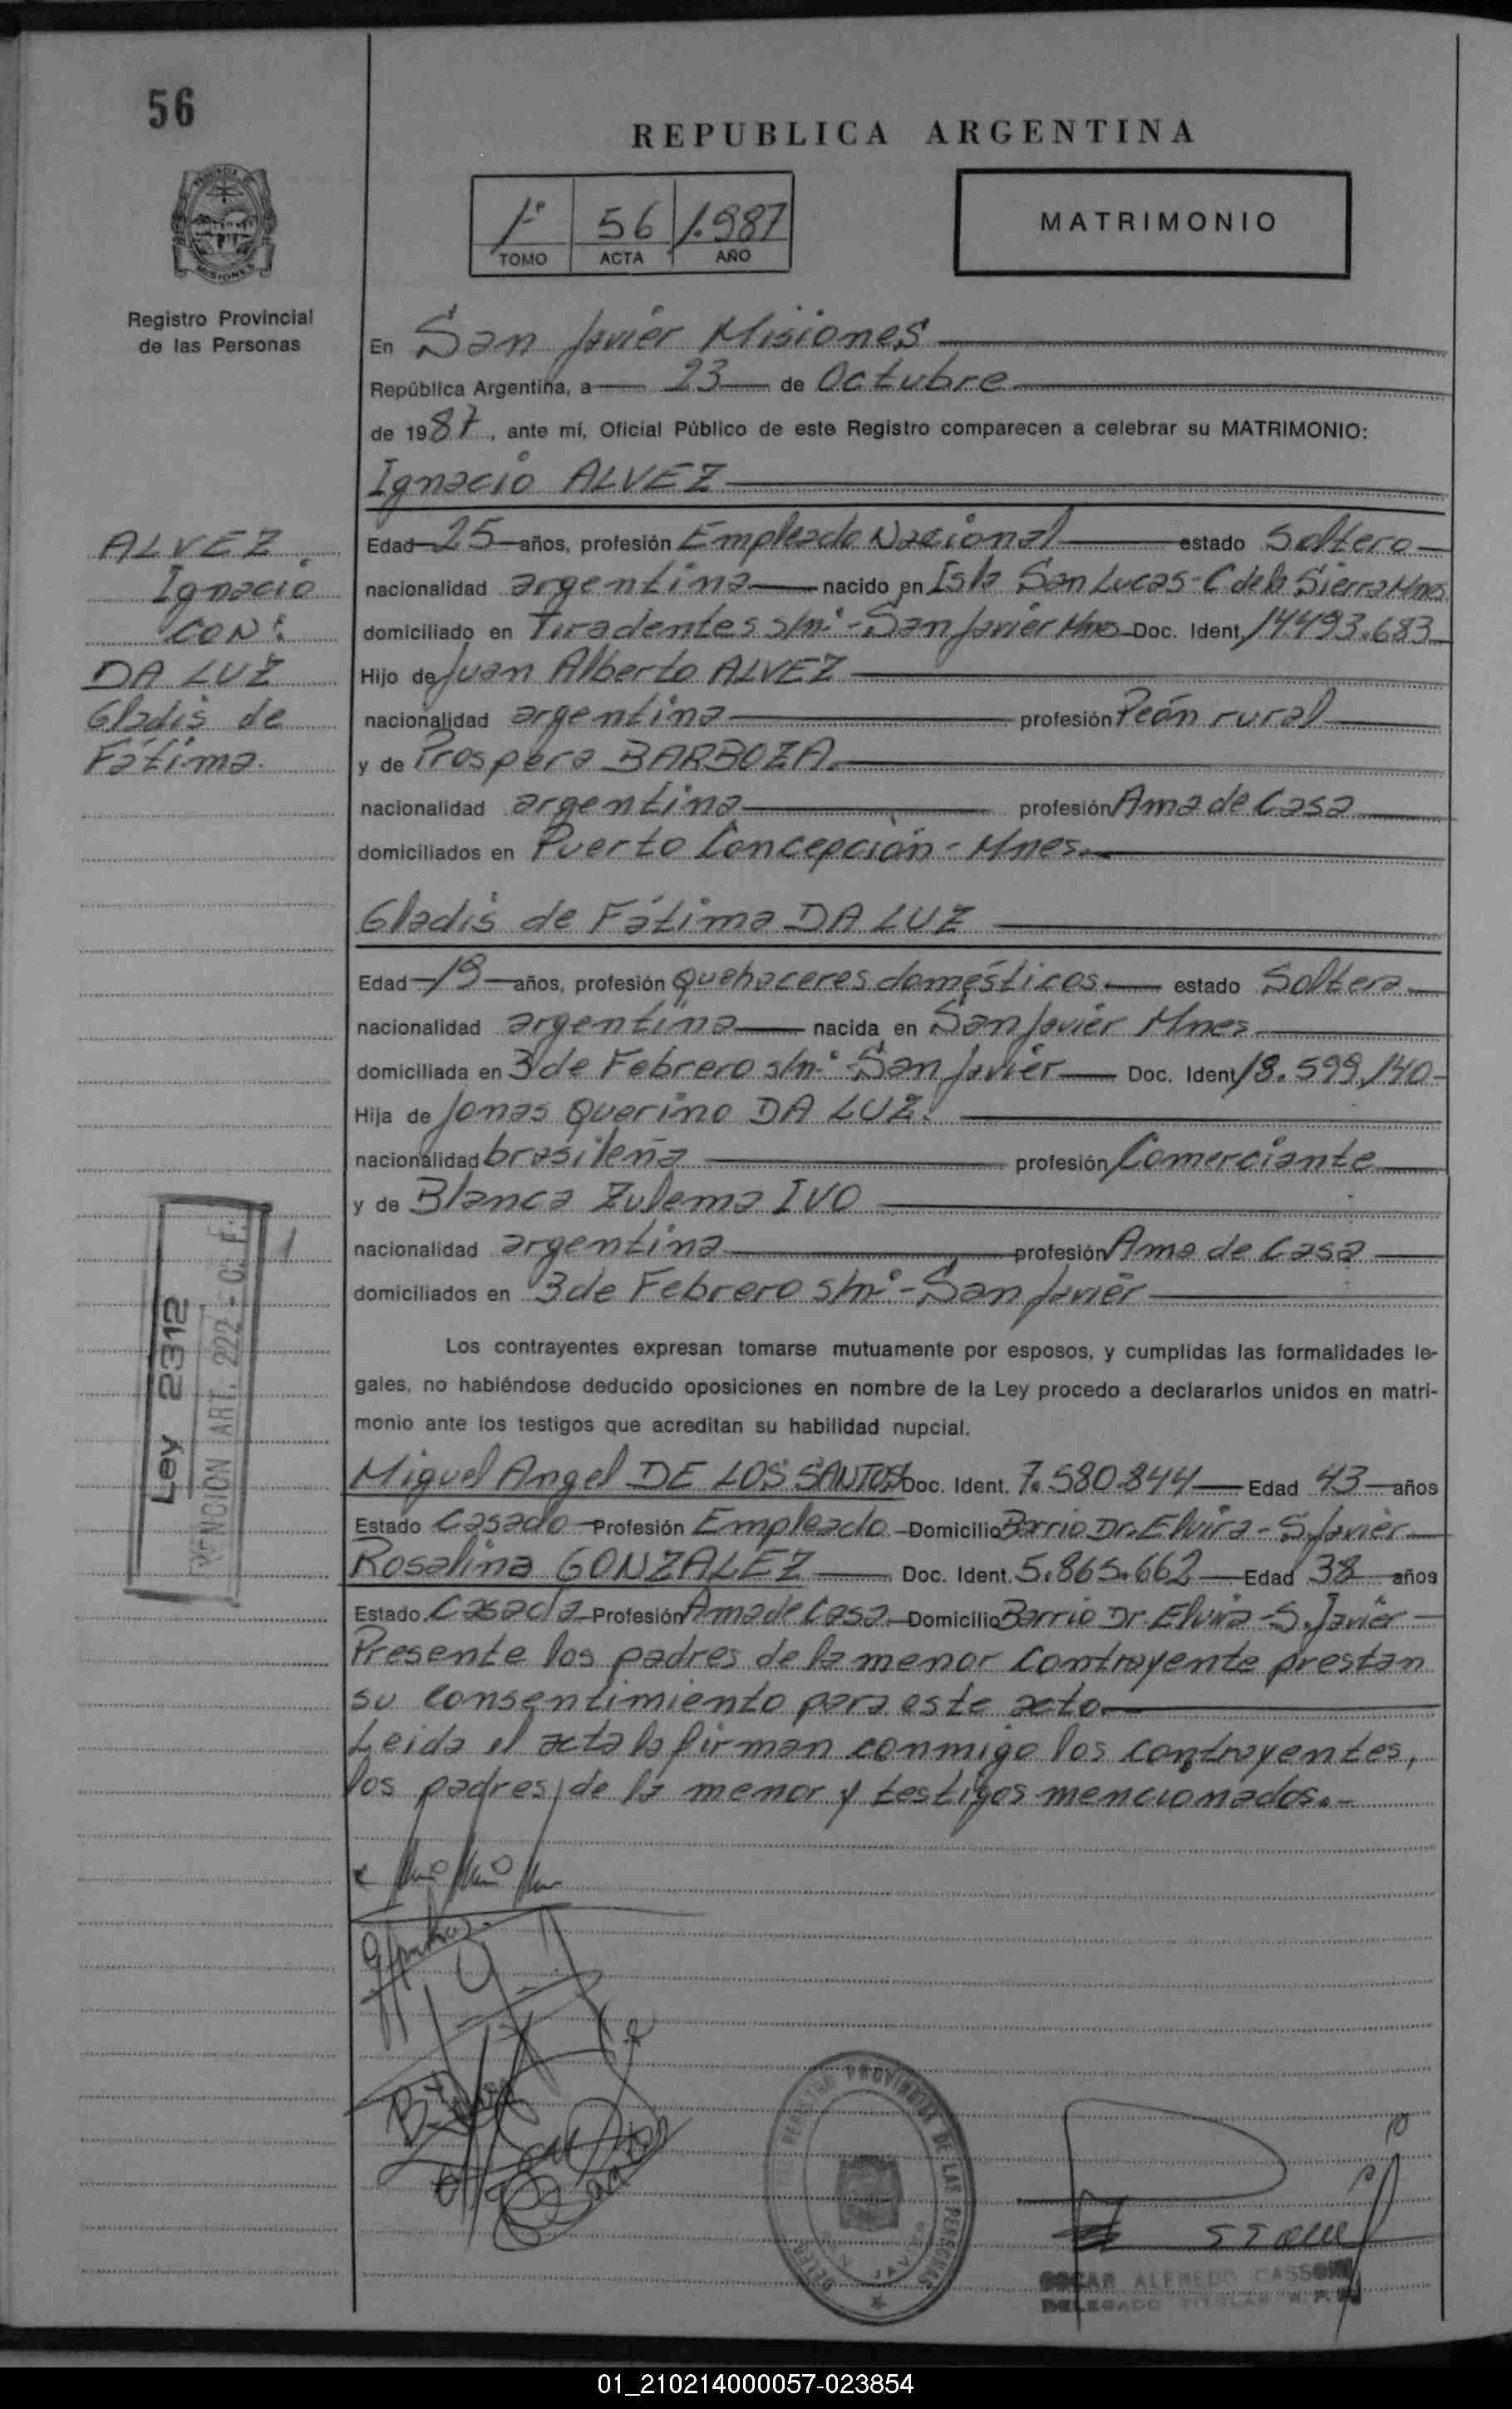 56
REPUBLICA ARGENTINA
1º 56 1.987
TOMO ACTA AÑO
MATRIMONIO
Registro Provincial
de las Personas
En San Javier Misiones
República Argentina, a 23 de Octubre
de 1987, ante mí, Oficial Público de este Registro comparecen a celebrar su MATRIMONIO:
Ignacio ALVEZ
ALVEZ
Ignacio
CON:
DA LUZ
Gladis de
Fátima.
Edad 25 años, profesión Empleado Nacional estado Soltero
nacionalidad argentina nacido en Isla San Lucas - C de la Sierra Mnes
domiciliado en Tiradentes s/nº - San Javier Mnes Doc. Ident. 14.493.683
Hijo de Juan Alberto ALVEZ
nacionalidad argentina profesión Peón rural
y de Prospera BARBOZA.
nacionalidad argentina profesión Ama de Casa
domiciliados en Puerto Concepción - Mnes.
Gladis de Fátima DA LUZ
Edad 19 años, profesión quehaceres domésticos estado Soltera
nacionalidad argentina nacida en San Javier Mnes
domiciliada en 3 de Febrero s/nº San Javier Doc. Ident 18.599.140
Hija de Jonas Querino DA LUZ.
nacionalidad brasileña profesión Comerciante
y de Blanca Zulema IVO
nacionalidad argentina profesión Ama de Casa
domiciliados en 3 de Febrero s/nº - San Javier
Ley 2312
ART. 222 - C. F.
Los contrayentes expresan tomarse mutuamente por esposos, y cumplidas las formalidades le-
gales, no habiéndose deducido oposiciones en nombre de la Ley procedo a declararlos unidos en matri-
monio ante los testigos que acreditan su habilidad nupcial.
Miguel Angel DE LOS SANTOS Doc. Ident. 7.580.844 Edad 43 años
Estado Casado Profesión Empleado Domicilio Barrio Dr. Elvira - S. Javier
Rosalina GONZALEZ Doc. Ident. 5.865.662 Edad 38 años
Estado Casada Profesión Ama de Casa Domicilio Barrio Dr. Elvira - S. Javier
Presente los padres de la menor contrayente prestan
su consentimiento para este acto
Leida el acta la firman conmigo los contrayentes,
los padres de la menor y testigos mencionados.-
REGISTRO PROVINCIAL DE LAS PERSONAS
OSCAR ALFREDO CASSONI
DELEGADO TITULAR
01_210214000057-023854